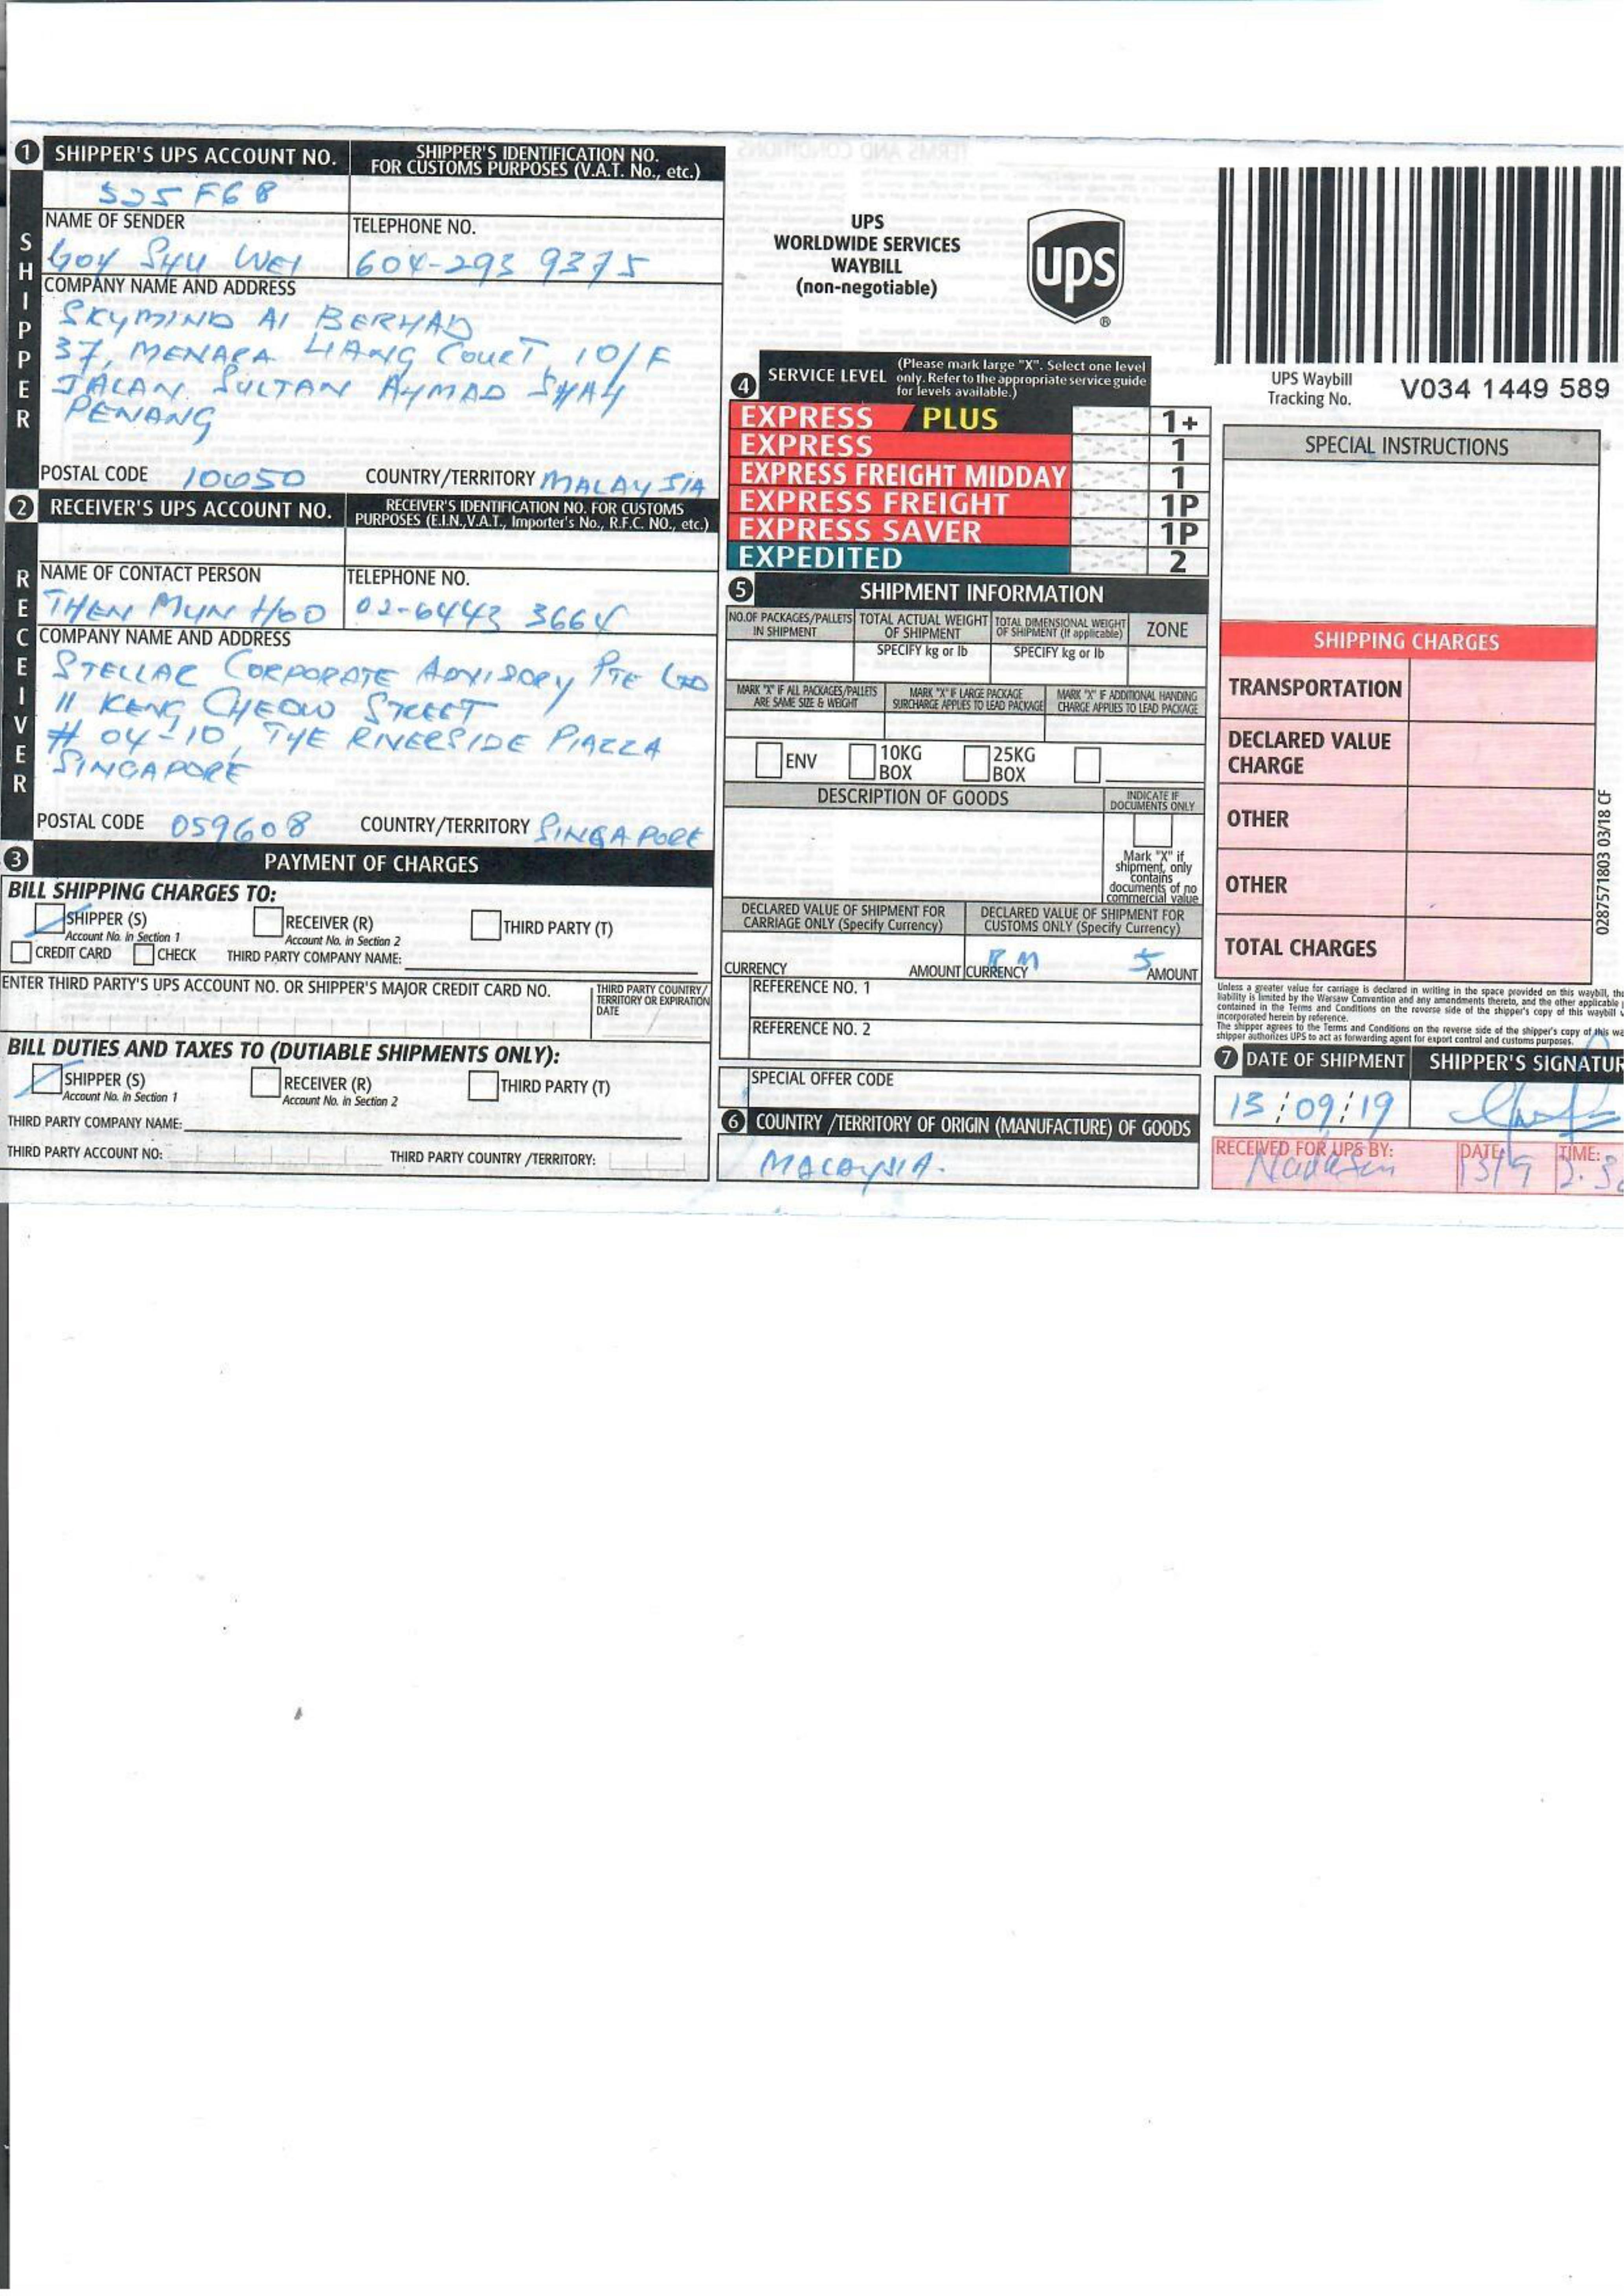 TERMS AND CONDITIONS
1 SHIPPER'S UPS ACCOUNT NO.
SHIPPER'S IDENTIFICATION NO.
FOR CUSTOMS PURPOSES (V.A.T. No., etc.)
525F68
SHIPPER
NAME OF SENDER
GOH SHU WEI
TELEPHONE NO.
604-293 9375
COMPANY NAME AND ADDRESS
SKYMIND AI BERHAD
37, MENARA LIANG COURT, 10/F
JALAN SULTAN AHMAD SHAH
PENANG
POSTAL CODE 10050
COUNTRY/TERRITORY MALAYSIA
2 RECEIVER'S UPS ACCOUNT NO.
RECEIVER'S IDENTIFICATION NO. FOR CUSTOMS
PURPOSES (E.I.N.,V.A.T., Importer's No., R.F.C. NO., etc.)
RECEIVER
NAME OF CONTACT PERSON
THEN MUN HOO
TELEPHONE NO.
02-6443 3664
COMPANY NAME AND ADDRESS
STELLAR CORPORATE ADVISORY PTE LTD
11 KENG CHEOW STREET
# 04-10, THE RIVERSIDE PIAZZA
SINGAPORE
POSTAL CODE 059608
COUNTRY/TERRITORY SINGAPORE
3 PAYMENT OF CHARGES
BILL SHIPPING CHARGES TO:
SHIPPER (S)
Account No. in Section 1
RECEIVER (R)
Account No. in Section 2
THIRD PARTY (T)
CREDIT CARD
CHECK
THIRD PARTY COMPANY NAME:
ENTER THIRD PARTY'S UPS ACCOUNT NO. OR SHIPPER'S MAJOR CREDIT CARD NO.
THIRD PARTY COUNTRY/
TERRITORY OR EXPIRATION
DATE
BILL DUTIES AND TAXES TO (DUTIABLE SHIPMENTS ONLY):
SHIPPER (S)
Account No. in Section 1
RECEIVER (R)
Account No. in Section 2
THIRD PARTY (T)
THIRD PARTY COMPANY NAME:
THIRD PARTY ACCOUNT NO:
THIRD PARTY COUNTRY /TERRITORY:
UPS
WORLDWIDE SERVICES
WAYBILL
(non-negotiable)
ups
®
4 SERVICE LEVEL
(Please mark large "X". Select one level
only. Refer to the appropriate service guide
for levels available.)
EXPRESS PLUS 1+
EXPRESS 1
EXPRESS FREIGHT MIDDAY 1
EXPRESS FREIGHT 1P
EXPRESS SAVER 1P
EXPEDITED 2
5 SHIPMENT INFORMATION
NO.OF PACKAGES/PALLETS
IN SHIPMENT
TOTAL ACTUAL WEIGHT
OF SHIPMENT
TOTAL DIMENSIONAL WEIGHT
OF SHIPMENT (If applicable)
ZONE
SPECIFY kg or lb
SPECIFY kg or lb
MARK "X" IF ALL PACKAGES/PALLETS
ARE SAME SIZE & WEIGHT
MARK "X" IF LARGE PACKAGE
SURCHARGE APPLIES TO LEAD PACKAGE
MARK "X" IF ADDITIONAL HANDING
CHARGE APPLIES TO LEAD PACKAGE
ENV
10KG
BOX
25KG
BOX
DESCRIPTION OF GOODS
INDICATE IF
DOCUMENTS ONLY
Mark "X" if
shipment, only
contains
documents of no
commercial value
DECLARED VALUE OF SHIPMENT FOR
CARRIAGE ONLY (Specify Currency)
DECLARED VALUE OF SHIPMENT FOR
CUSTOMS ONLY (Specify Currency)
RM 5
CURRENCY AMOUNT
CURRENCY AMOUNT
REFERENCE NO. 1
REFERENCE NO. 2
SPECIAL OFFER CODE
6 COUNTRY /TERRITORY OF ORIGIN (MANUFACTURE) OF GOODS
MALAYSIA.
UPS Waybill
Tracking No.
V034 1449 589
SPECIAL INSTRUCTIONS
SHIPPING CHARGES
TRANSPORTATION
DECLARED VALUE
CHARGE
OTHER
OTHER
TOTAL CHARGES
0287571803 03/18 CF
Unless a greater value for carriage is declared in writing in the space provided on this waybill, the
liability is limited by the Warsaw Convention and any amendments thereto, and the other applicable
contained in the Terms and Conditions on the reverse side of the shipper's copy of this waybill
incorporated herein by reference.
The shipper agrees to the Terms and Conditions on the reverse side of the shipper's copy of this
shipper authorizes UPS to act as forwarding agent for export control and customs purposes.
7 DATE OF SHIPMENT
SHIPPER'S SIGNATUR
13/09/19
RECEIVED FOR UPS BY:
DATE:
13/9
TIME: